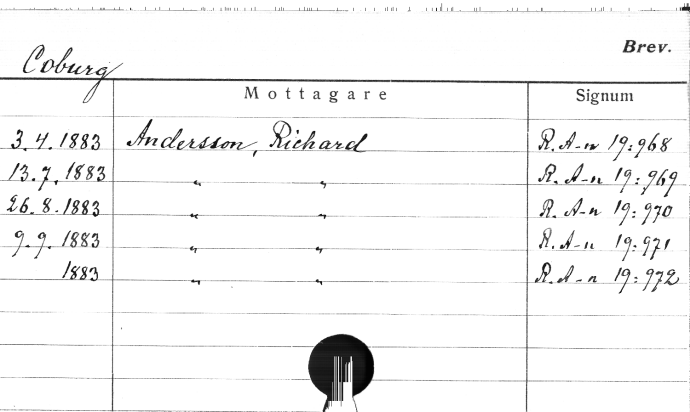 Brev.
Coburg
Mottagare Signum
3.4.1883 Andersson, Richard R. A-n 19:968
13.7.1883 " " R. A-n 19:969
26.8.1883 " " R. A-n 19:970
9.9.1883 " " R. A-n 19:971
1883 " " R. A-n 19:972